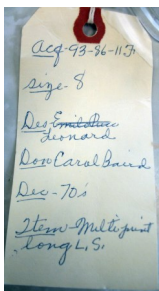 Acq-93-86-11 Ji
size-8
Des ~~Emilio Pucci~~
Leonard
Don Carol Baird
Dec-70's
Item-Multi print
long L.S.